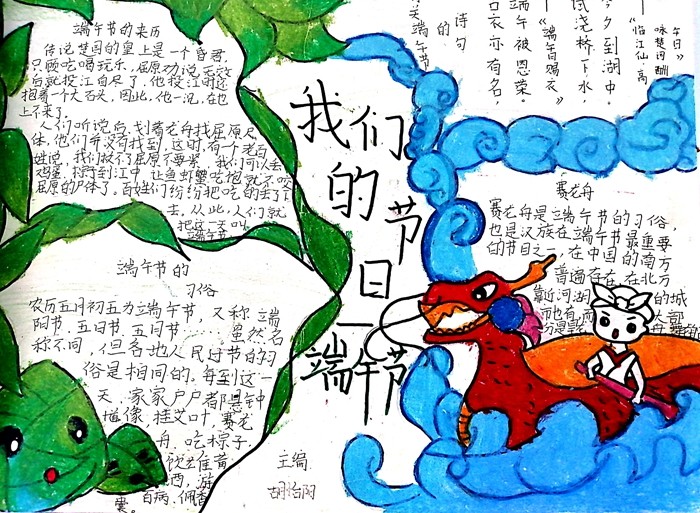 端午节的来历
传说楚国的皇上是一个昏君,
只顾吃喝玩乐,屈原劝说无效
后就投江自尽了,他投江时还
抱着一个大石头,因此,他一沉,在也
上不来了。
人们听说后,划着龙舟找屈原尸
体,他们并没有找到,这时,有个老百
姓说,我们救了屈原不要紧,我们可以丢
鸡蛋,粽子到江中,让鱼虾蟹吃饱就不咬
屈原的尸体了。百姓们纷纷把吃的丢了下
去,从此,人们就
把这一天叫
端午节
端午节的
习俗
农历五月初五为端午节,又称端
阳节,五日节,五月节……虽然名
称不同,但各地人民过节的习
俗是相同的。每到这一
天,家家户户都悬钟
馗像,挂艾叶,赛龙
舟,吃粽子,
饮雄黄
酒,游
百病,佩香
囊。
我们的节日—端午节
主编
午日》
咏楚词酬
《临江仙·高
今夕到湖中。
试浇桥下水,
《端午日赐衣》
端午被恩荣。
口衣亦有名,
诗句
天端午节
赛龙舟
赛龙舟是端午节的习俗,
也是汉族在端午节最重要
的节日之一,在中国的南方
普遍存在,在北方
靠近河湖的城